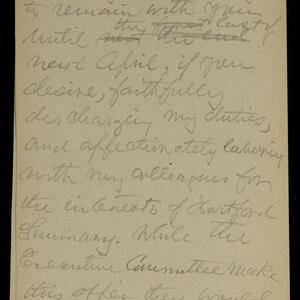 to remain with you
the first last of
until next the end
next April, if you
desire, faithfully
discharging my duties,
and affectionately laboring
with my colleagues for
the interests of Hartford
Seminary. While the
Executive Committee make
this offer they would